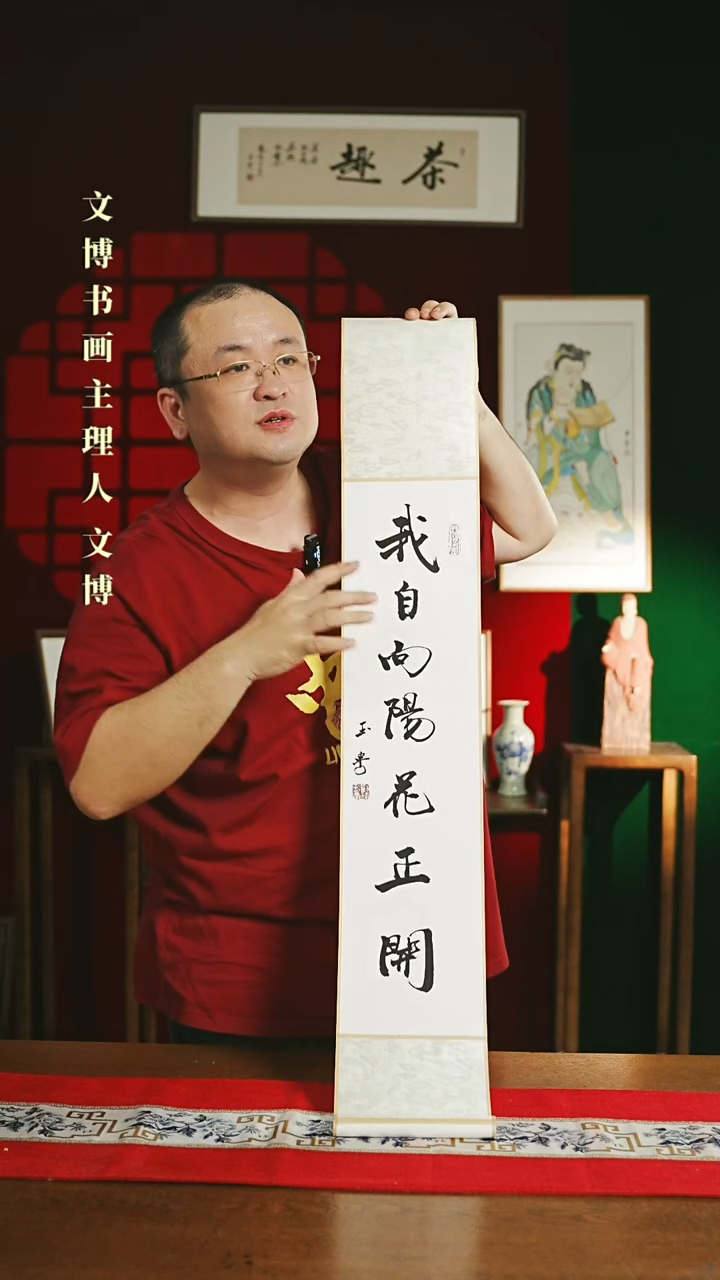 茶趣
文博书画主理人 文博
我自向陽花正開
玉粤